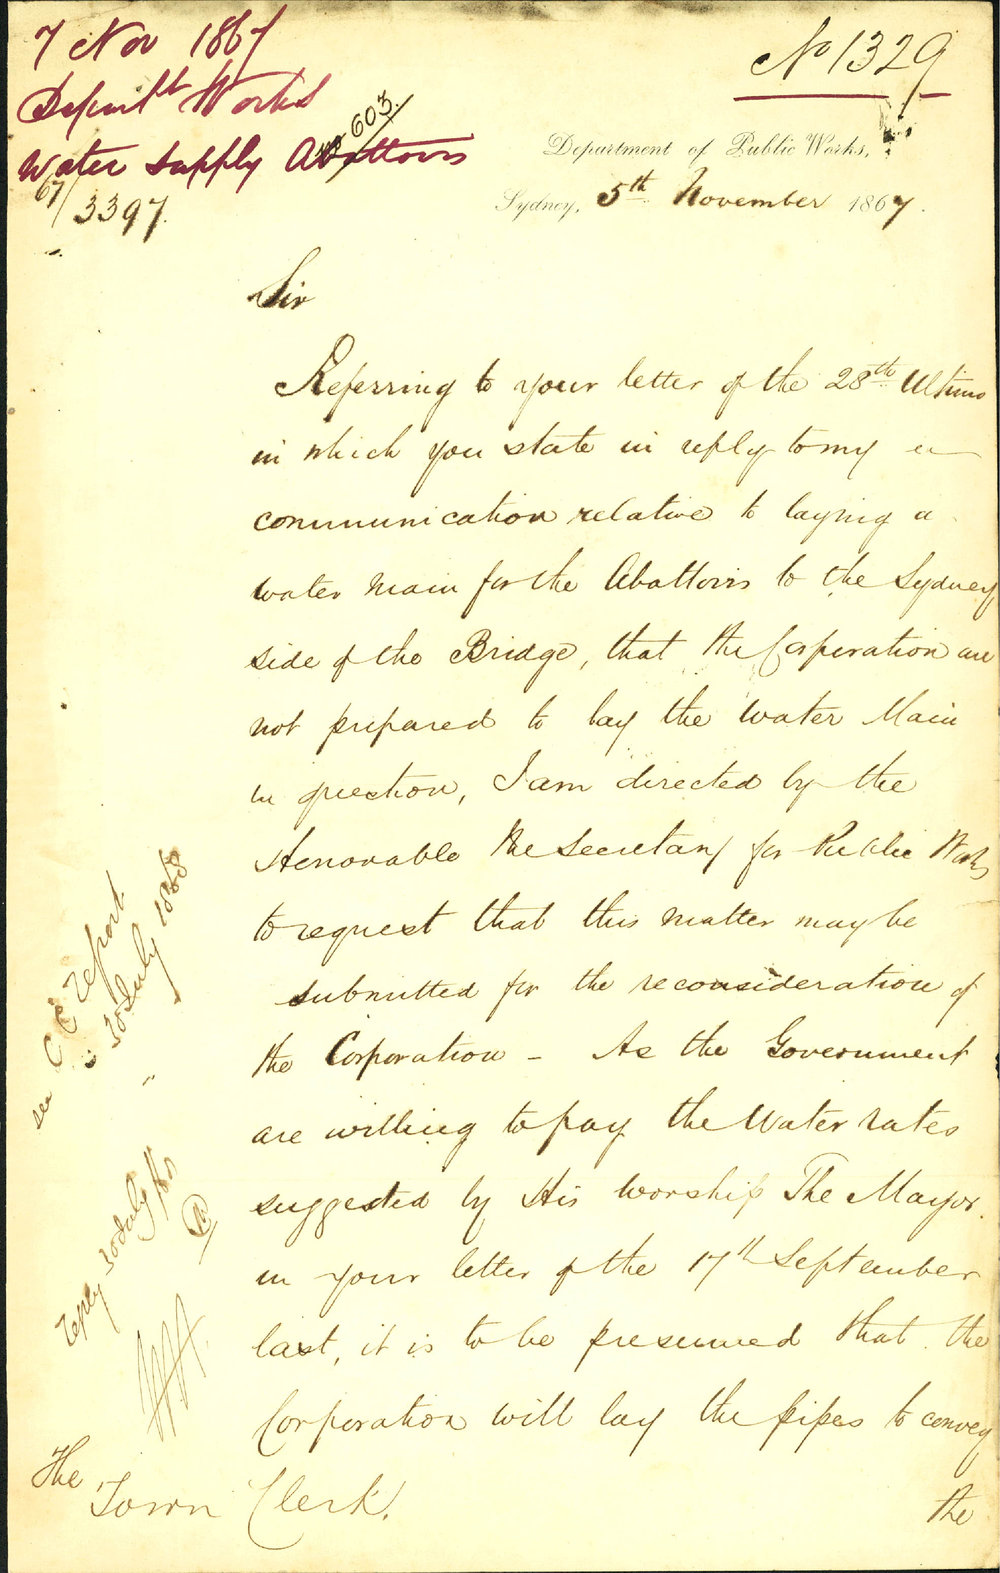 7 Nov 1867
Departt Works
Water Supply Abattoirs
603.
67/3397.
No 1329
Department of Public Works,
Sydney, 5th November 1867.
Sir
Referring to your letter of the 28th Ultimo
in which you state in reply to my
communication relative to laying a
water main for the Abattoirs to the Sydney
side of the Bridge, that the Corporation are
not prepared to lay the water Main
in question, I am directed by the
Honorable the Secretary for Public Works
to request that this matter may be
submitted for the reconsideration of
the Corporation - As the Government
are willing to pay the Water rates
suggested by His Worship The Mayor.
in your letter of the 17th September
last, it is to be presumed that the
Corporation will lay the pipes to convey
the
The
Town Clerk.
see CE report
30 July 1868
reply 30 July /68